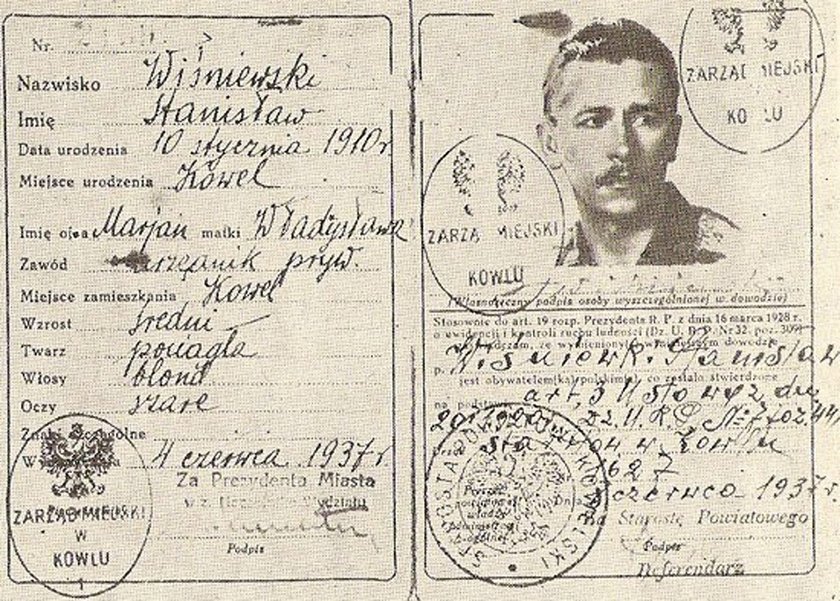 Nr.
Nazwisko Wiśniewski
Imię Stanisław
Data urodzenia 10 stycznia 1910 r.
Miejsce urodzenia Kowel
Imię ojca Marjan matki Władysława
Zawód urzędnik pryw.
Miejsce zamieszkania Kowel
Wzrost średni
Twarz pociągła
Włosy blond
Oczy szare
Znaki szczególne
4 czerwca 1937 r.
Za Prezydenta Miasta
w z.
Podpis
ZARZĄD MIEJSKI
W
KOWLU
1
ZARZĄD MIEJSKI
KOWLU
ZARZĄD MIEJSKI
KOWLU
(Własnoręczny podpis osoby wyszczególnionej w dowodzie)
Stosownie do art. 19 rozp. Prezydenta R. P. z dnia 16 marca 1928 r.
o ewidencji i kontroli ruchu ludności (Dz. U. R. P. Nr 32, poz. 309)
że wymieniony w niniejszym dowodzie
p. Wiśniewski Stanisław
jest obywatelem(ką) polskim(ą), co zostało stwierdzone
na podstawie art. 3 Ustawy z dn.
20 I 1920 r. Dz. U. R. P. № 7 poz. 44
przez w Kowlu
1627
Dnia czerwca 1937 r.
Za Starostę Powiatowego
Podpis
Referendarz